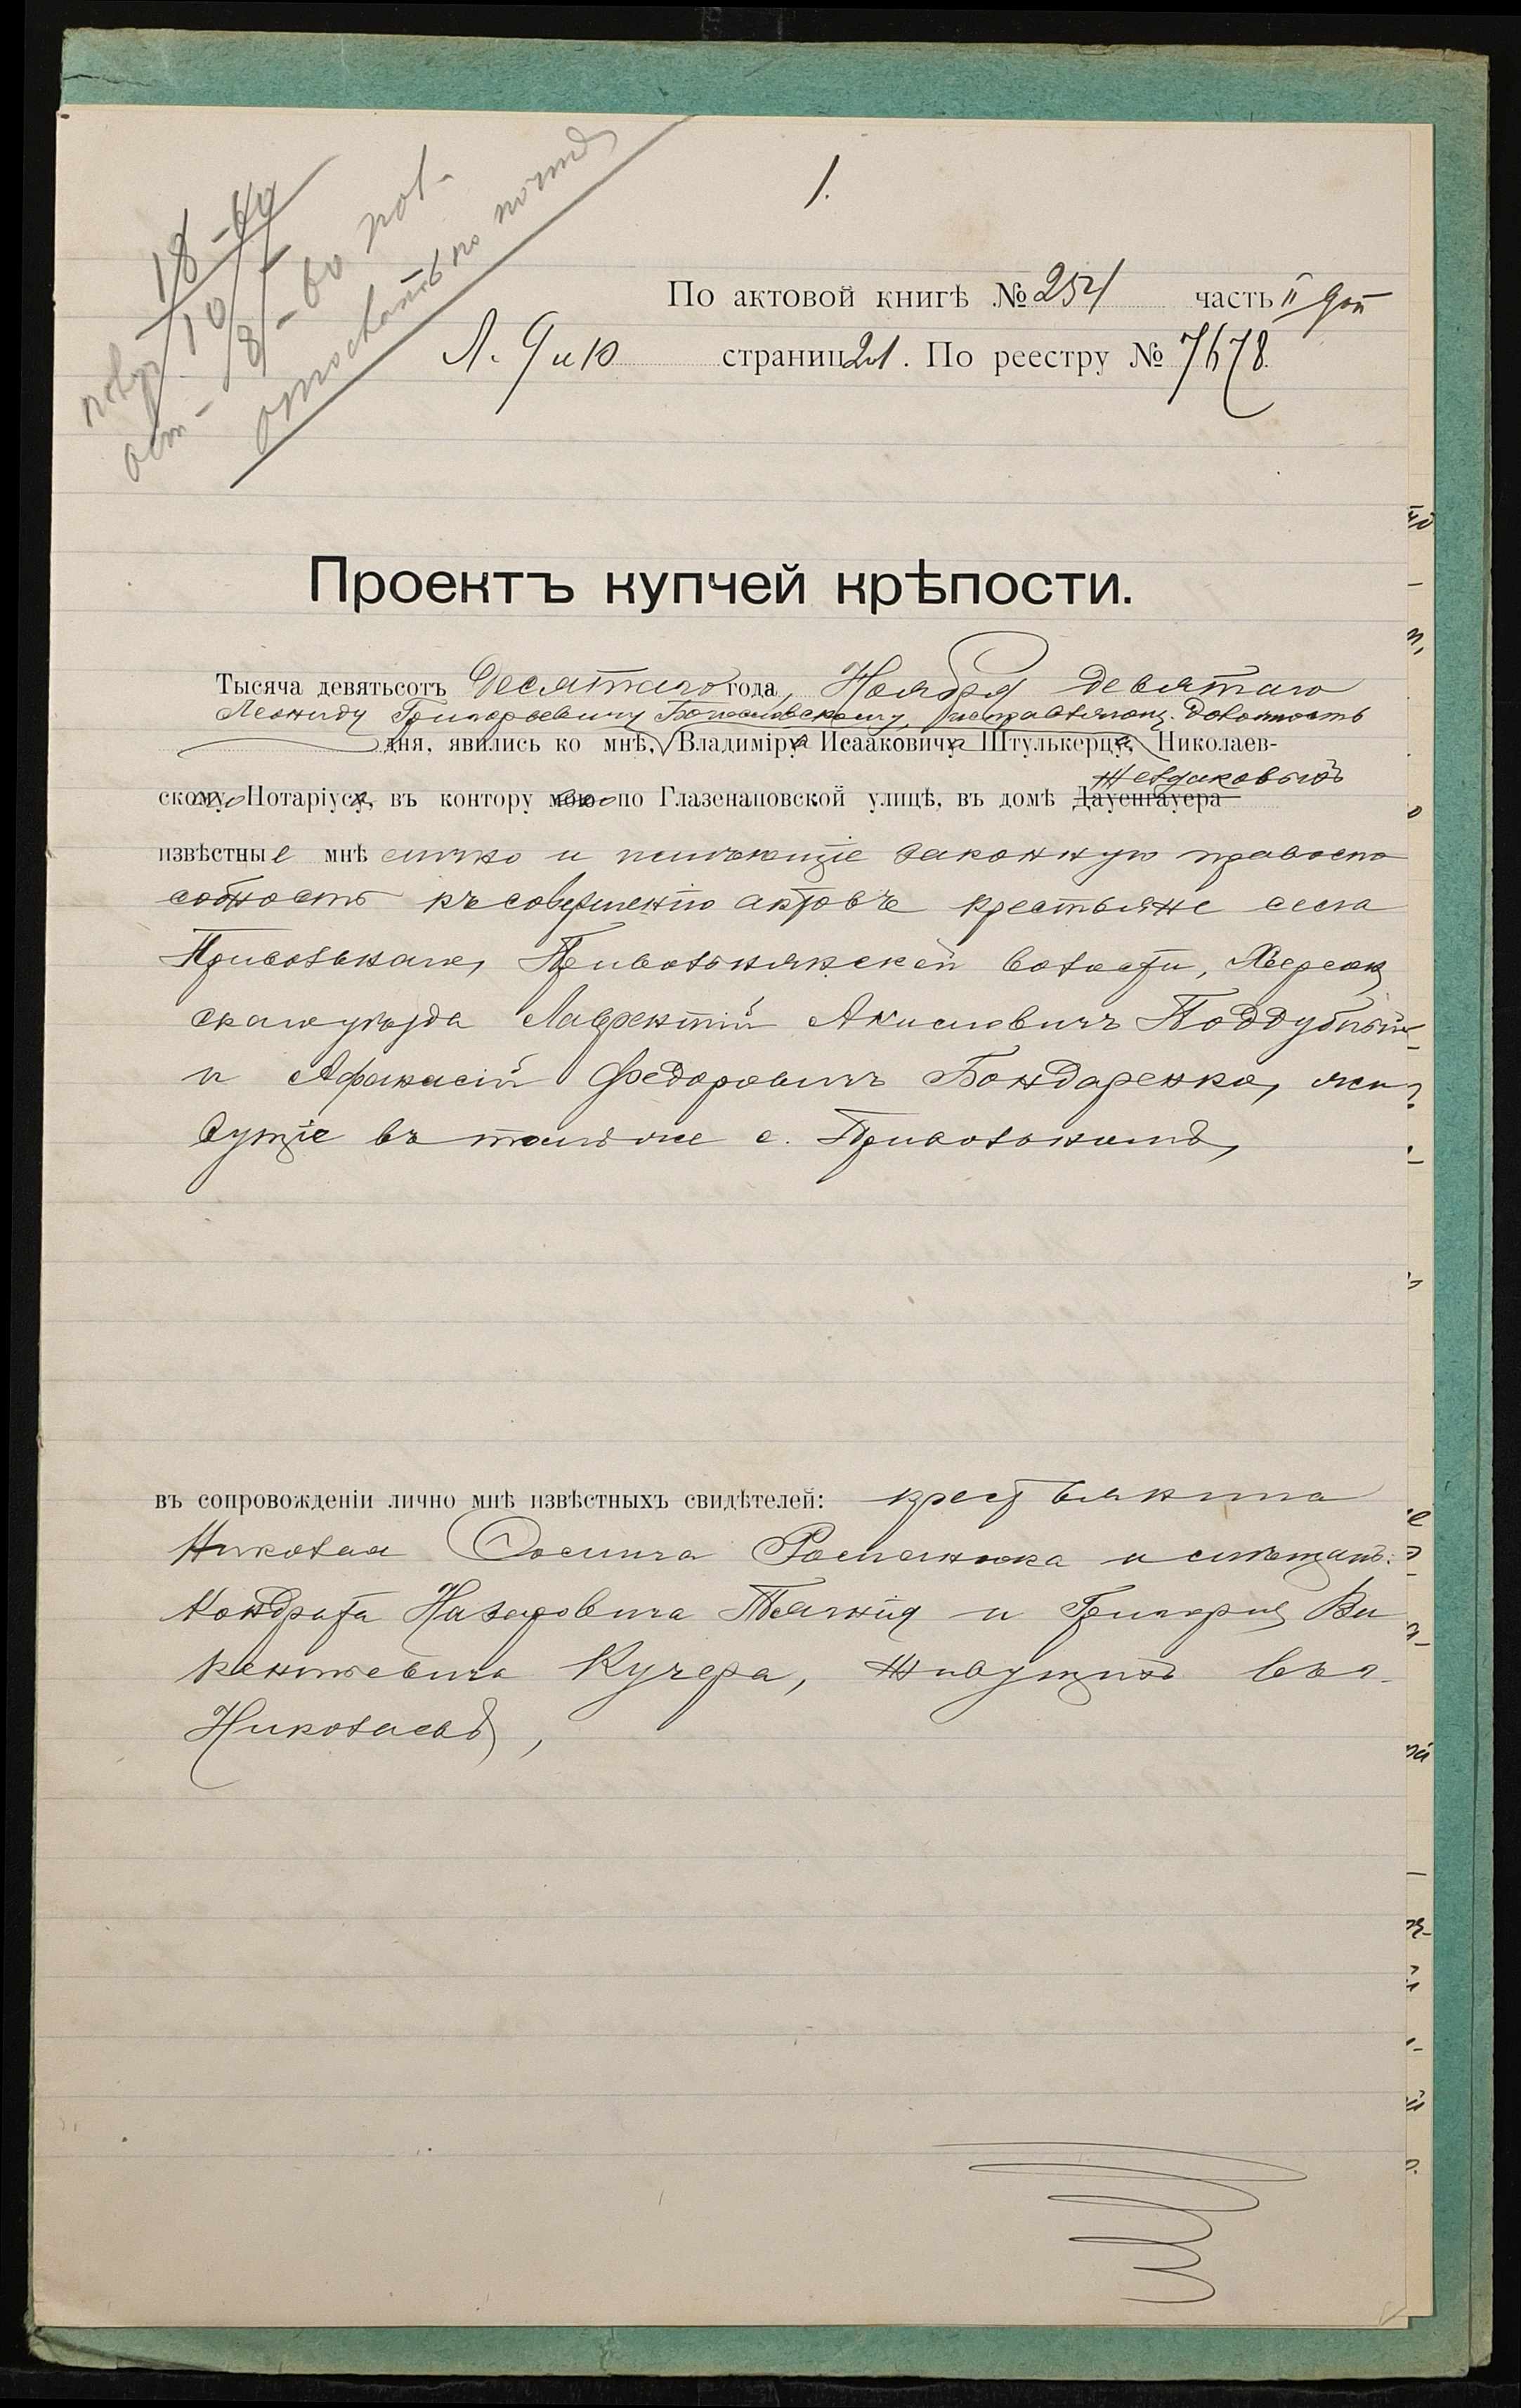 1.
По актовой книгѣ № 254 часть II доп
Л. 9 и 10 страниц 21. По реестру № 7678.
Проектъ купчей крѣпости.
Тысяча девятьсотъ десятаго года, Ноября девятаго
Леониду Григорьевичу Богословскому, исправляющ. должность
дня, явились ко мнѣ, Владиміру Исааковичу Штулькерцу, Николаев-
скому Нотаріусу, въ контору мою по Глазенаповской улицѣ, въ домѣ Дауенгауера
извѣстные мнѣ лично и имѣющіе законную правоспо
собность къ совершенію актовъ крестьяне села
Привольнаго, Привольнянской волости, Херсон
скаго уѣзда Лаврентій Акимовичъ Поддубный
и Афанасій Федоровичъ Бондаренко, жи
вущіе въ томъ же с. Привольномъ,
въ сопровожденіи лично мнѣ извѣстныхъ свидѣтелей: крестьянина
Николая Осипа и мѣщанъ:
Кондрата Назаровича и Григорія Ви
кентьевича Кучера, живущихъ въ г.
Николаевѣ,